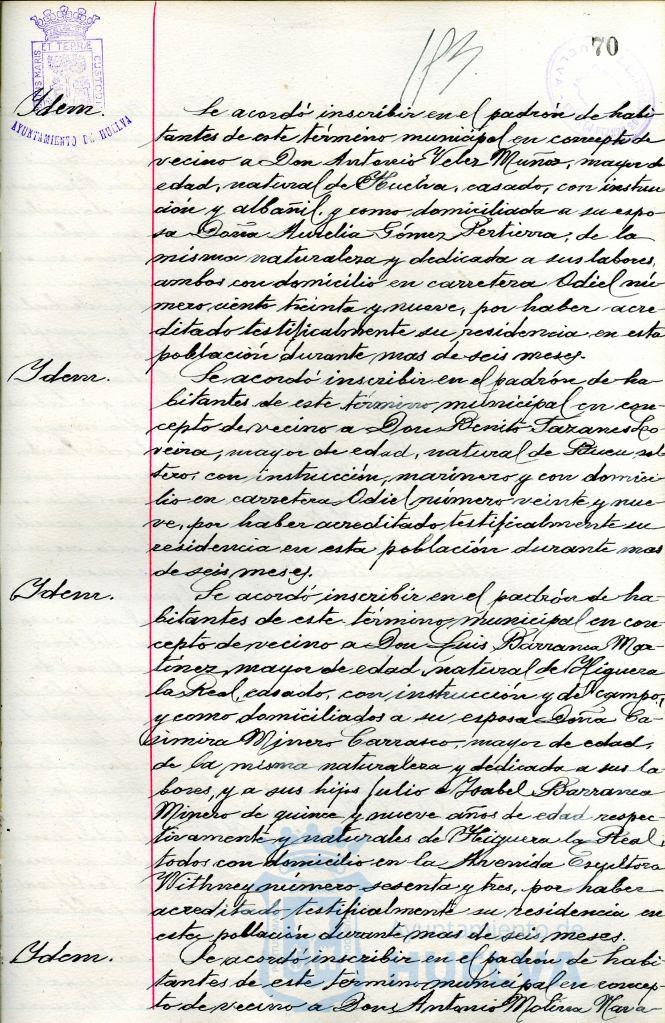 70
Idem.
AYUNTAMIENTO DE HUELVA
Se acordó inscribir en el padrón de habi
tantes de este término municipal en concepto de
vecino a Don Antonio Velez Muñoz, mayor de
edad, natural de Huelva, casado, con instruc
ción y albañil, y como domiciliada a su espo
sa Doña Aurelia Gómez Pertierra, de la
misma naturaleza y dedicada a sus labores,
ambos con domicilio en carretera Odiel nú-
mero ciento treinta y nueve, por haber acre
ditado testificalmente su residencia en esta
población durante mas de seis meses.
Idem.
Se acordó inscribir en el padrón de ha-
bitantes de este término municipal en con-
cepto de vecino a Don Benito
mayor de edad, natural de sol
tero, con instrucción, marinero y con domici
lio en carretera Odiel número veinte y nue-
ve, por haber acreditado testificalmente su
residencia en esta población durante mas
de seis meses.
Idem.
Se acordó inscribir en el padrón de ha-
bitantes de este término municipal en con-
cepto de vecino a Don Luis Barranca Mar-
tínez, mayor de edad, natural de Higuera
la Real, casado, con instrucción y del campo,
y como domiciliados a su esposa Doña Ca-
simira Minero Carrasco, mayor de edad,
de la misma naturaleza y dedicada a sus la
bores, y a sus hijos Julio e Isabel Barranca
Minero de quince y nueve años de edad respec-
tivamente y naturales de Higuera la Real,
todos con domicilio en la Avenida Escultora
Withney número sesenta y tres, por haber
acreditado testificalmente su residencia en
esta población durante mas de seis meses.
Idem.
Se acordó inscribir en el padrón de habi
tantes de este término municipal en concep-
to de vecino a Don Antonio Molina Nava-
Ayuntamiento de
HUELVA